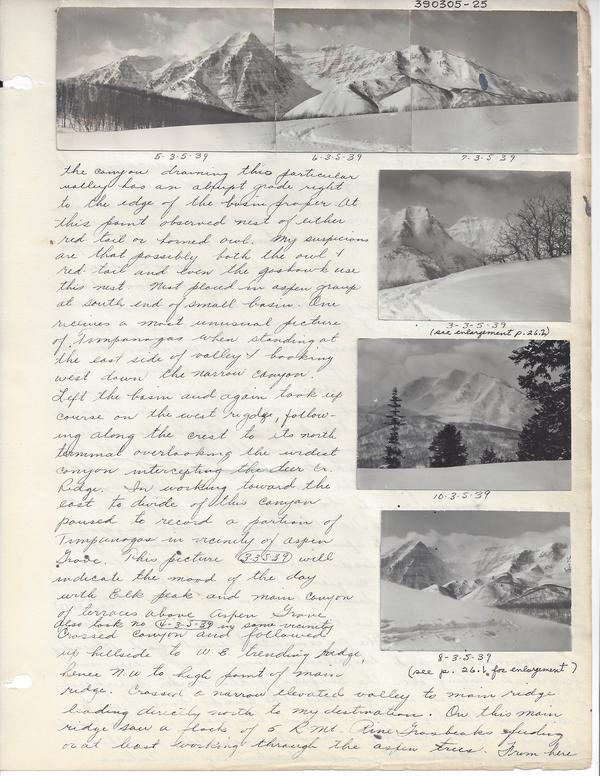 390305-25
5-3-5-39
6-3-5-39
7-3-5-39
the canyon draining this particular
valley has an abrupt grade right
to the edge of the basin proper. At
this point observed nest of either
red tail or horned owl. My suspicions
are that possibly both the owl &
red tail and even the goshawk use
this nest. Nest placed in aspen group
at south end of small basin. One
receives a most unusual picture
of Timpanogas when standing at
the east side of valley & looking
west down the narrow canyon.
Left the basin and again took up
course on the west ridge, follow-
ing along the crest to its north
terminal overlooking the widest
canyon intercepting the deer Cr.
Ridge. In working toward the
east to divide of this canyon
paused to record a portion of
Timpanogas in vicinity of aspen
Grove. This picture 3-3-5-39 will
indicate the mood of the day
with Elk peak and main canyon
of terraces above Aspen Grove.
Also took no 4-3-5-39 in same vicinity
Crossed canyon and followed
up hillside to W.E. trending ridge,
hence N.W to high point of main
ridge. Crossed a narrow elevated valley to main ridge
leading directly north to my destination. On this main
ridge saw a flock of 5 R.Mt. Pine Grosbeaks feeding
or at least working through the aspen trees. From here
3-3-5-39
(see enlargement p. 26.½)
10-3-5-39
8-3-5-39
(see p. 26.½ for enlargement)